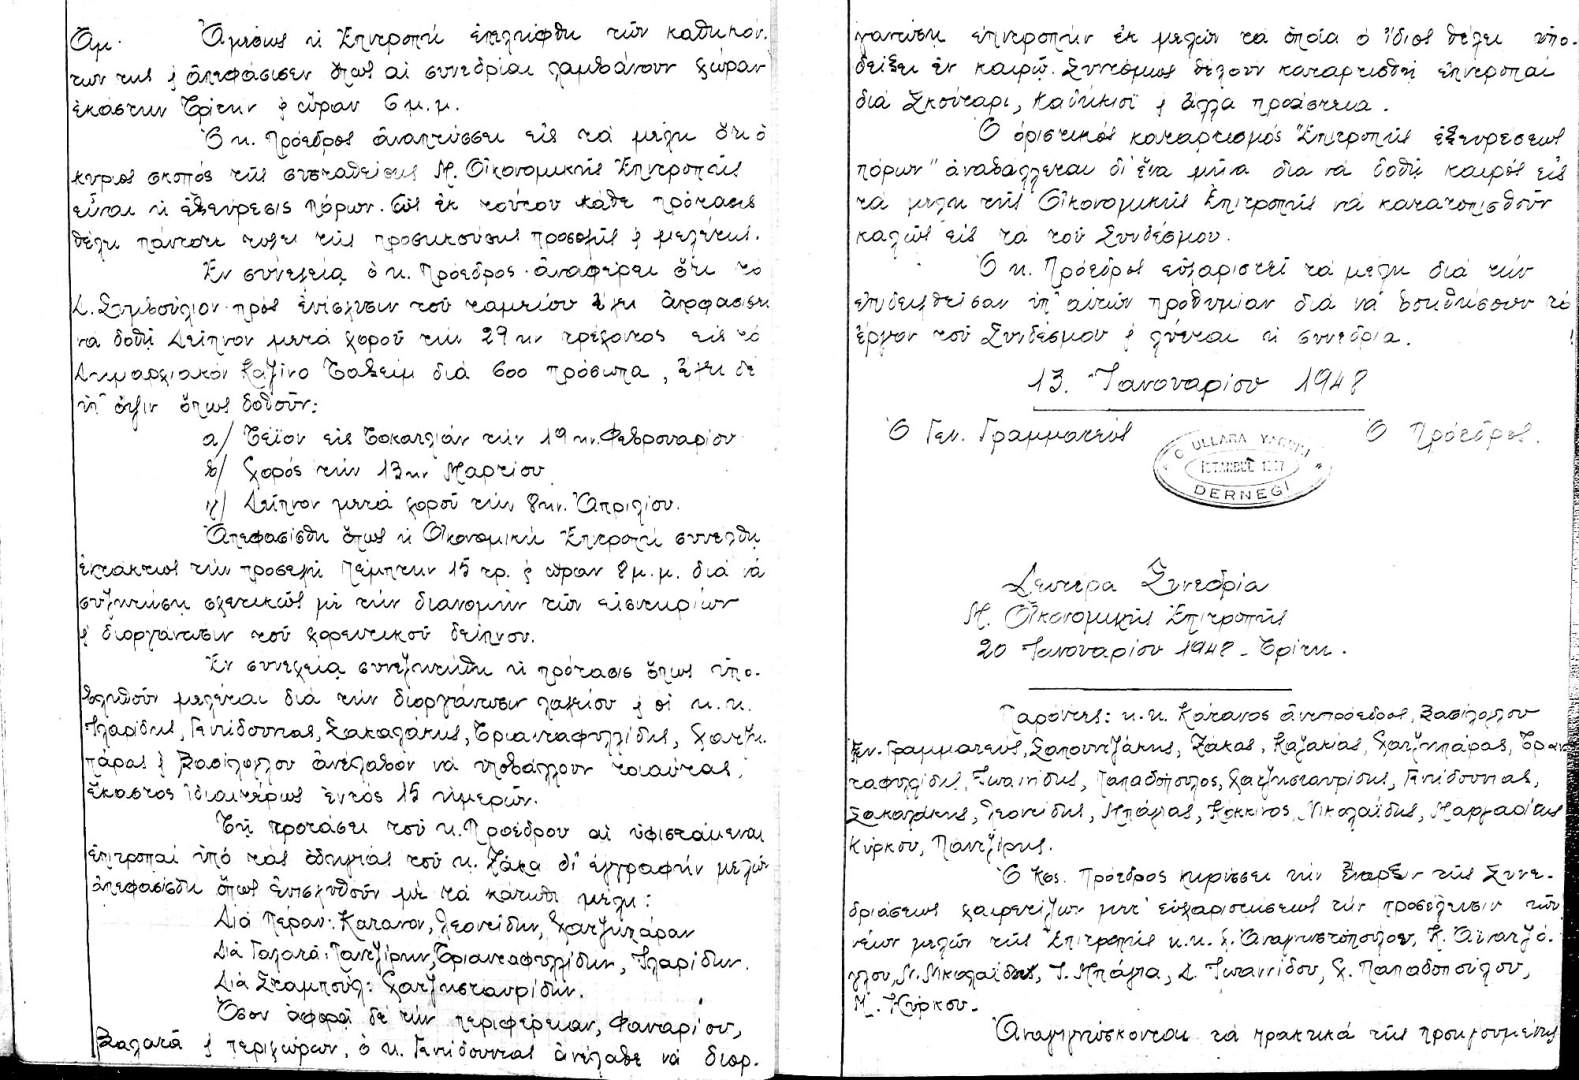 Ὁμ. Ἀμέσως ἡ Ἐπιτροπή ἐπελήφθη τῶν καθηκόν-
των της ϗ ἀπεφάσισεν ὅπως αἱ συνεδρίαι λαμβάνουν χώραν
ἑκάστην Τρίτην ϗ ὥραν 6 μ.μ.
Ὁ κ. Πρόεδρος ἀναπτύσσει εἰς τά μέλη ὅτι ὁ
κυριος σκοπός τῆς συσταθείσης Μ. Οἰκονομικῆς Ἐπιτροπῆς
εἶναι ἡ ἐξεύρεσις πόρων. Ὡς ἐκ τούτου κάθε πρότασις
θέλει πάντοτε τύχει τῆς προσηκούσης προσοχῆς ϗ μελέτης.
Ἐν συνεχείᾳ ὁ κ. Πρόεδρος ἀναφέρει ὅτι το
Δ. Συμβούλιον πρός ἐνίσχυσιν τοῦ ταμείου ἔχει ἀποφασίσει
νά δοθῇ Δεῖπνον μετά χοροῦ τήν 29ην τρέχοντος εἰς τό
Δημαρχιακόν Καζίνο Ταξείμ διά 600 πρόσωπα, ἔχει δέ
ὑπ' ὄψιν ὅπως δοθοῦν:
α/ Τέϊον εἰς Τοκατλιάν τήν 19ην Φεβρουαρίου
β/ χορός τήν 13ην Μαρτίου
γ/ Δεῖπνον μετά χοροῦ τήν 8ην Ἀπριλίου.
Ἀπεφασίσθη ὅπως ἡ Οἰκονομική Ἐπιτροπή συνέλθῃ
ἐκτάκτως τήν προσεχῆ Πέμπτην 15 τρ. ϗ ὥραν 8 μ.μ. διά νά
συζητήσῃ σχετικῶς μέ τήν διανομήν τῶν εἰσιτηρίων
ϗ διοργάνωσιν τοῦ χορευτικοῦ δείπνου.
Ἐν συνεχείᾳ συνεζητήθη ἡ πρότασις ὅπως ὑπο-
βληθοῦν μελέται διά τήν διοργάνωσιν λαχείου ϗ οἱ κ.κ.
Ἰλαρίδης, Γενίδουνιας, Σακαλάκης, Τριανταφυλλίδης, Χατζη-
πάρας ϗ Βασίλογλου ἀνέλαβον νά ὑποβάλλουν τοιαύτας,
ἕκαστος ἰδιαιτέρως ἐντός 15 ἡμερῶν.
Τῇ προτάσει τοῦ κ. Προέδρου αἱ ὑφιστάμεναι
ἐπιτροπαί ὑπό τάς ὁδηγίας τοῦ κ. Ζάκα δι' ἐγγραφήν μελῶν
ἀπεφασίσθη ὅπως ἐνισχυθοῦν μέ τά κάτωθι μέλη:
Διά Πέραν: Κατανον, Λεονίδην, Χατζηπάραν
Διά Γαλατᾶ: Πανζίρην, Τριανταφυλλίδην, Ἰλαρίδην.
Διά Σταμπούλ: Χατζησταυρίδην.
Ὅσον ἀφορᾷ δέ τήν περιφέρειαν, Φαναρίου,
Βαλατᾶ ϗ περιχώρων, ὁ κ. Γενίδουνιας ἀνέλαβε νά διορ-
γανώσῃ ἐπιτροπήν ἐκ μελῶν τά ὁποῖα ὁ ἴδιος θέλει ὑπο-
δείξει ἐν καιρῷ. Συντόμως θέλουν καταρτισθῇ ἐπιτροπαί
διά Σκούταρι, Καδήκιοϊ ϗ ἄλλα προάστεια.
Ὁ ὁριστικός καταρτισμός "Ἐπιτροπῆς ἐξευρέσεως
πόρων" ἀναβάλλεται δι' ἕνα μῆνα διά νά δοθῇ καιρός εἰς
τά μέλη τῆς Οἰκονομικῆς Ἐπιτροπῆς νά κατατοπισθοῦν
καλῶς εἰς τά τοῦ Συνδέσμου.
Ὁ κ. Πρόεδρος εὐχαριστεῖ τά μέλη διά τήν
ἐπιδειχθεῖσαν ὑπ' αὐτῶν προθυμίαν διά νά βοηθήσουν τό
ἔργον τοῦ Συνδέσμου ϗ λύεται ἡ συνεδρία.
13. Ἰανουαρίου 1948
Ὁ Γεν. Γραμματεύς Ὁ Πρόεδρος.
ISTANBUL 1947
DERNEGI
Δευτέρα Συνεδρία
Μ. Οἰκονομικῆς Ἐπιτροπῆς
20 Ἰανουαρίου 1948 - Τρίτη.
Παρόντες: κ.κ. Κάτανος ἀντιπρόεδρος, Βασίλογλου
Γεν. Γραμματεύς, Σαπουντζάκης, Ζάκας, Καζακίας, Χατζηπάρας, Τριαν-
ταφυλλίδης, Ἰωαννίδης, Παπαδόπουλος, Χατζησταυρίδης, Γενίδουνιας,
Σακαλάκης, Λεονίδης, Μπάγιας, Κόκκινος, Νικολαΐδης, Μαργαρίτης
Κύρκου, Πανζίρης.
Ὁ Κος. Πρόεδρος κηρύσσει τήν ἔναρξιν τῆς Συνε-
δριάσεως χαιρετίζων μετ' εὐχαριστήσεως τήν προσέλευσιν τῶν
νέων μελῶν τῆς Ἐπιτροπῆς κ.κ. Χ. Ἀναγνωστόπουλου, Κ. Ἀϊνατζό-
γλου, Ν. Νικολαΐδη, Ἰ. Μπάγια, Δ. Ἰωαννίδου, Χ. Παπαδοπούλου,
Μ. Κύρκου.
Ἀναγιγνώσκονται τά πρακτικά τῆς προηγουμένης